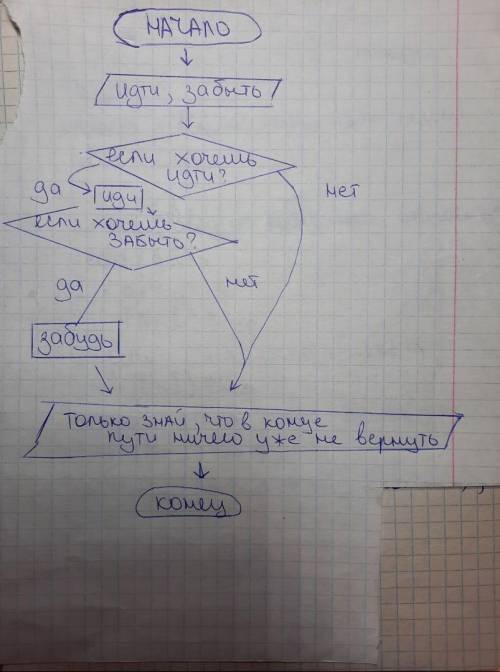 НАЧАЛО
идти, забыть
если хочешь
идти?
да
нет
иди
если хочешь
забыть?
да
нет
забудь
только знай, что в конце
пути ничего уже не вернуть
конец